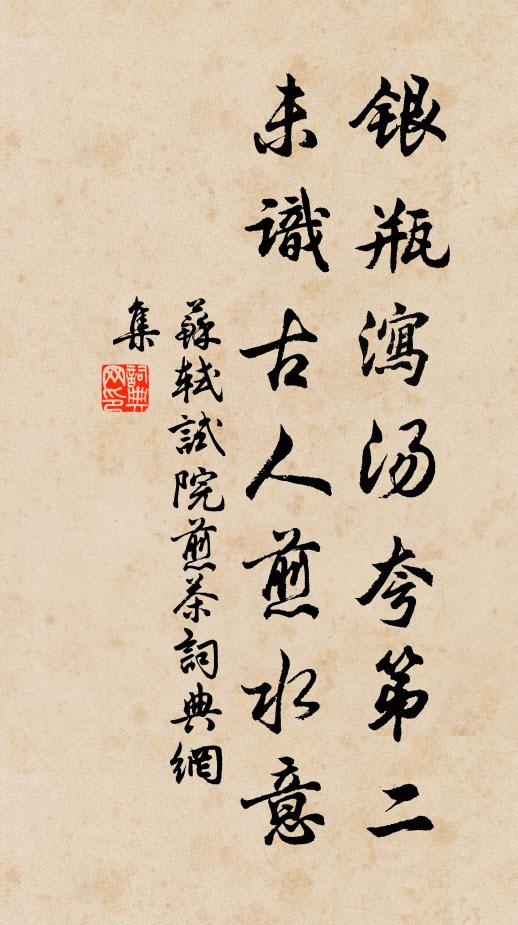 銀瓶瀉汤夸第二
未識古人煎水意
蘇軾試院煎茶詞典網
集
詞典
网印